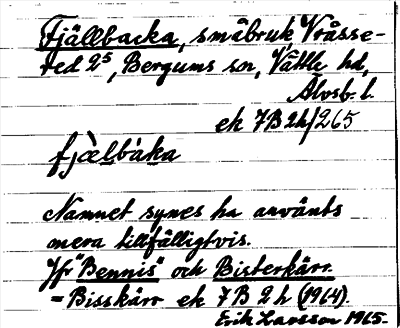 Fjällbacka, småbruk, Vråsse-
red 2⁵, Bergums sn, Vättle hd,
Älvsb. l.
ek 7B 2h/265
fjæ̀lbàka
Namnet synes ha använts
mera tillfälligtvis.
Jfr "Bennis" och Bisterkärr
= Bisskärr ek 7B 2h (1964).
Erik Larsson 1965.